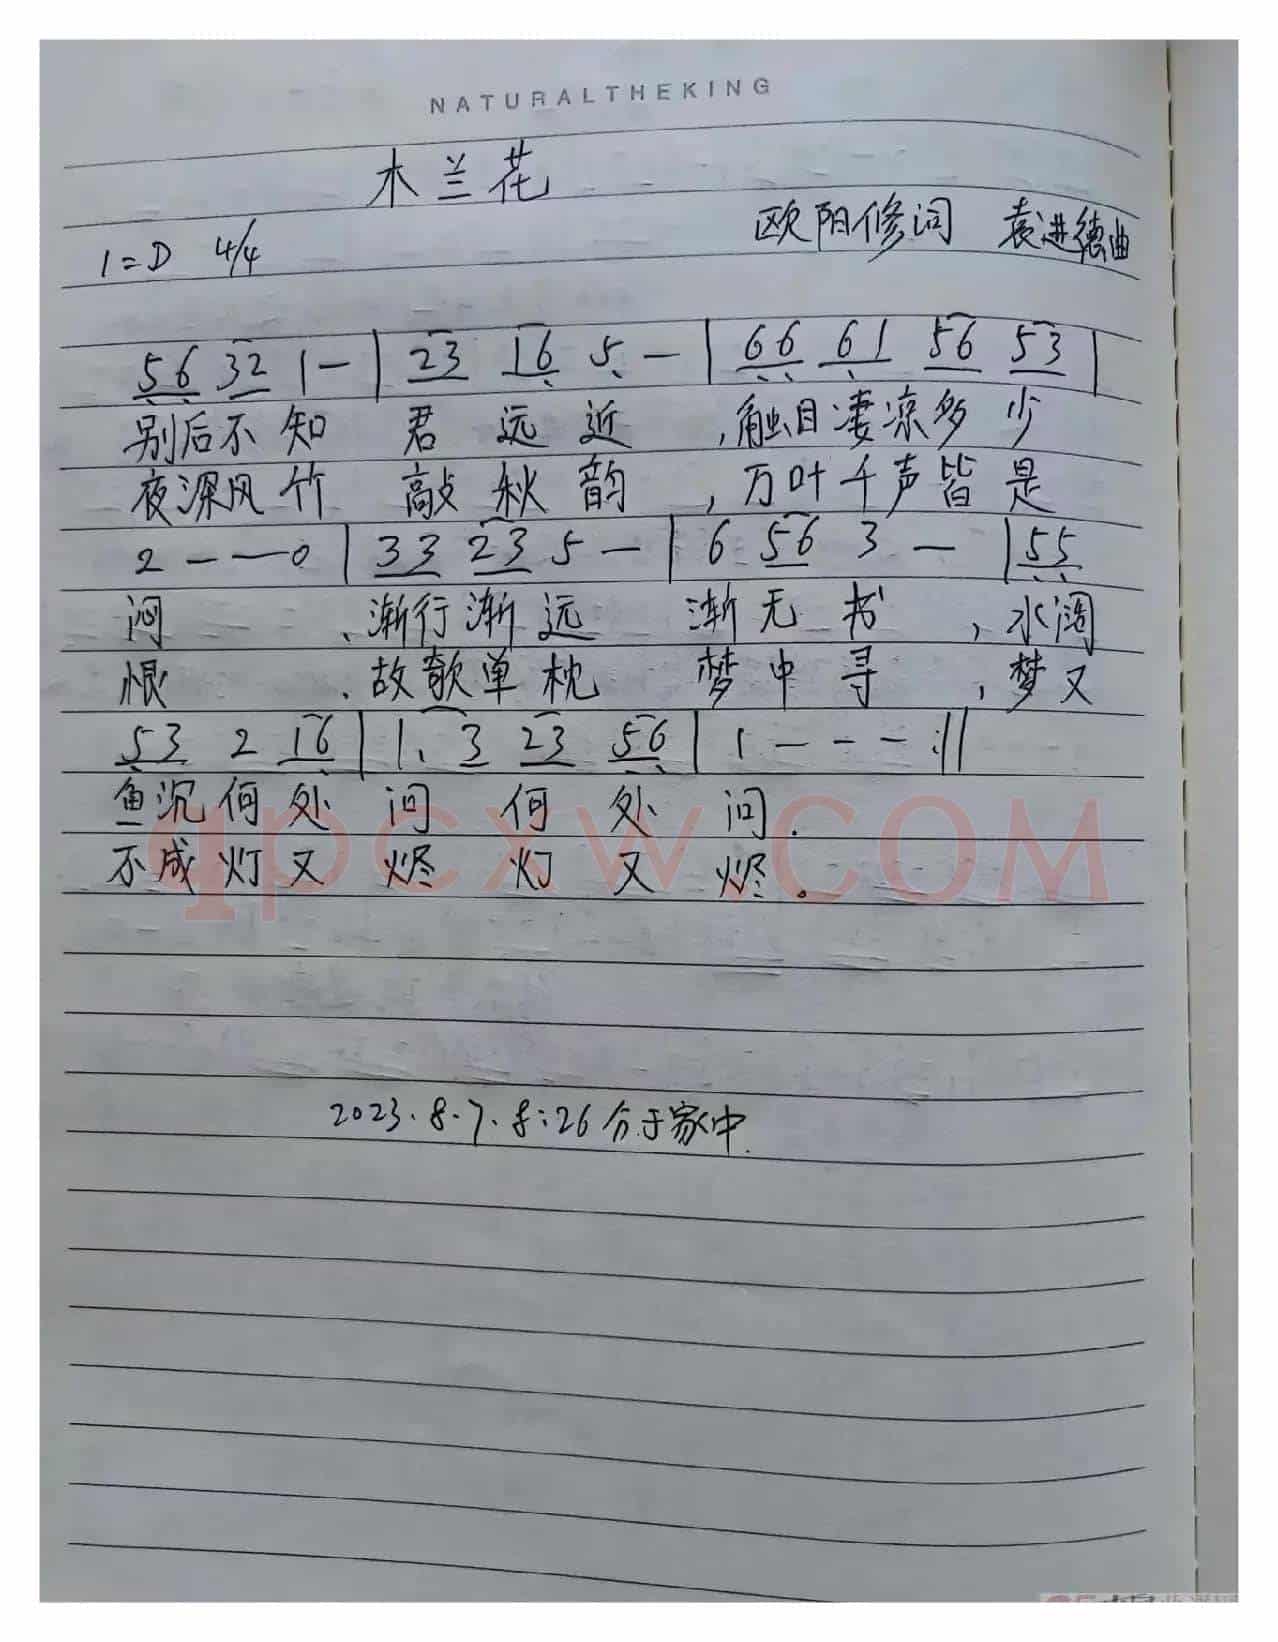 NATURALTHEKING
木兰花
欧阳修词 袁进德曲
1=D 4/4
56 32 1 - | 23 16 5 - | 66 61 56 53 |
别后不知 君远近,触目凄凉多少
夜深风竹 敲秋韵,万叶千声皆是
2 - - 0 | 33 23 5 - | 6 56 3 - | 55
闷、渐行渐远 渐无书,水阔
恨、故欹单枕 梦中寻,梦又
53 2 16 | 1. 3 23 56 | 1 - - - :||
鱼沉何处 问何处 问.
不成灯又 烬灯又 烬。
qpcxw.COM
2023.8.7.8:26分于家中.